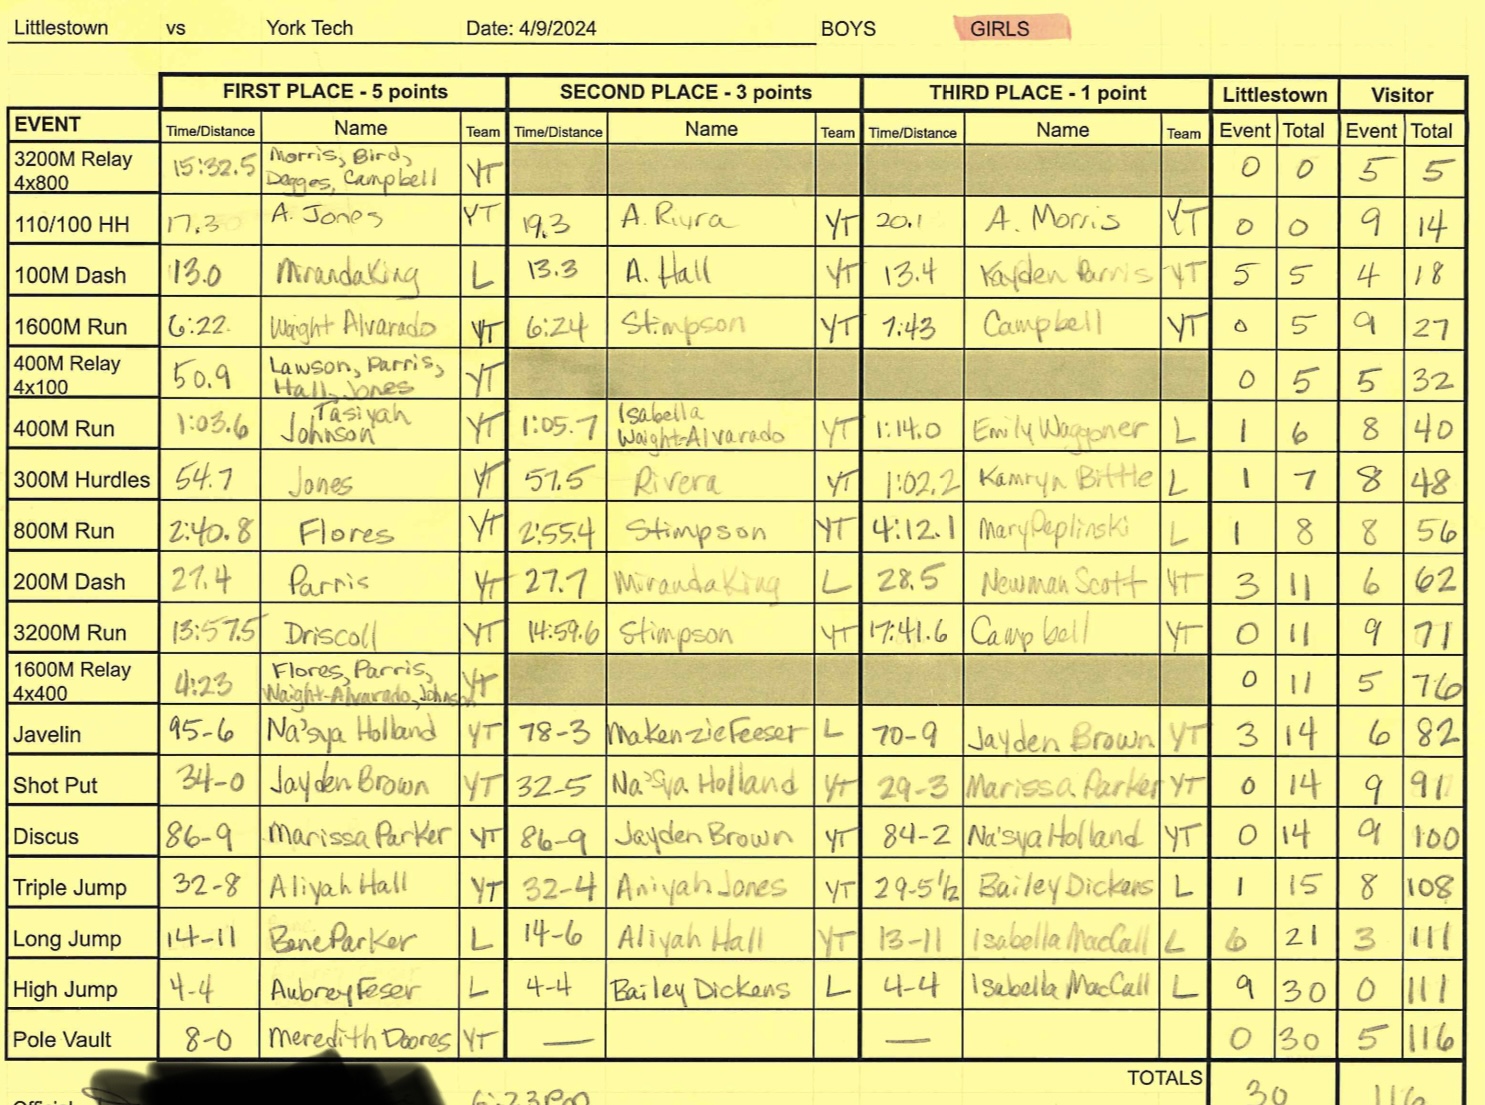 Littlestown vs York Tech Date: 4/9/2024 BOYS GIRLS
FIRST PLACE - 5 points SECOND PLACE - 3 points THIRD PLACE - 1 point Littlestown Visitor
EVENT Time/Distance Name Team Time/Distance Name Team Time/Distance Name Team Event Total Event Total
3200M Relay 4x800 15:32.5 Morris, Bird, Degges, Campbell YT 0 0 5 5
110/100 HH 17.3 A. Jones YT 19.3 A. Rivra YT 20.1 A. Morris YT 0 0 9 14
100M Dash 13.0 Miranda King L 13.3 A. Hall YT 13.4 Kayden Parris YT 5 5 4 18
1600M Run 6:22 Waight Alvarado YT 6:24 Stimpson YT 7:43 Campbell YT 0 5 9 27
400M Relay 4x100 50.9 Lawson, Parris, Hall, Jones YT 0 5 5 32
400M Run 1:03.6 Tasiyah Johnson YT 1:05.7 Isabella Waight-Alvarado YT 1:14.0 Emily Waggoner L 1 6 8 40
300M Hurdles 54.7 Jones YT 57.5 Rivera YT 1:02.2 Kamryn Bittle L 1 7 8 48
800M Run 2:40.8 Flores YT 2:55.4 Stimpson YT 4:12.1 Mary Peplinski L 1 8 8 56
200M Dash 27.4 Parris YT 27.7 Miranda King L 28.5 Newman Scott YT 3 11 6 62
3200M Run 13:57.5 Driscoll YT 14:59.6 Stimpson YT 17:41.6 Campbell YT 0 11 9 71
1600M Relay 4x400 4:23 Flores, Parris, Waight-Alvarado, Johnson YT 0 11 5 76
Javelin 95-6 Na'sya Holland YT 78-3 Makenzie Feeser L 70-9 Jayden Brown YT 3 14 6 82
Shot Put 34-0 Jayden Brown YT 32-5 Na'sya Holland YT 29-3 Marissa Parker YT 0 14 9 91
Discus 86-9 Marissa Parker YT 86-9 Jayden Brown YT 84-2 Na'sya Holland YT 0 14 9 100
Triple Jump 32-8 Aliyah Hall YT 32-4 Aniyah Jones YT 29-5½ Bailey Dickens L 1 15 8 108
Long Jump 14-11 Bene Parker L 14-6 Aliyah Hall YT 13-11 Isabella MacCall L 6 21 3 111
High Jump 4-4 Aubrey Feser L 4-4 Bailey Dickens L 4-4 Isabella MacCall L 9 30 0 111
Pole Vault 8-0 Meredith Doores YT — — 0 30 5 116
TOTALS 30 116
Official 6:23pm